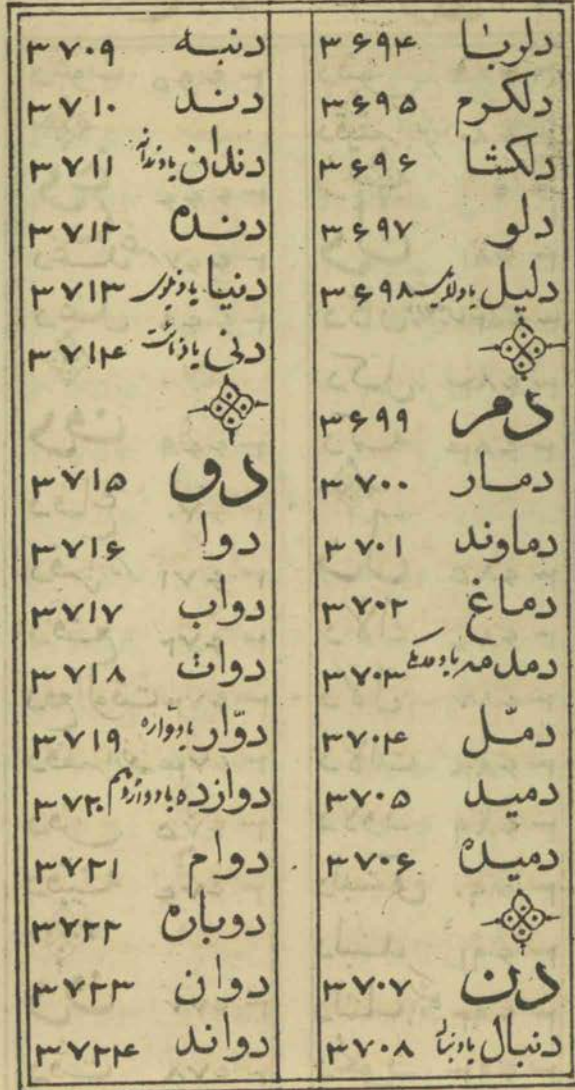 دلوبا ۳۶۹۴
دلکرم ۳۶۹۵
دلکشا ۳۶۹۶
دلو ۳۶۹۷
دلیل ۳۶۹۸
دمر ۳۶۹۹
دمار ۳۷۰۰
دماوند ۳۷۰۱
دماغ ۳۷۰۲
دمدمه ۳۷۰۳
دمّل ۳۷۰۴
دمید ۳۷۰۵
دمیده ۳۷۰۶
دن ۳۷۰۷
دنبال ۳۷۰۸
دنبه ۳۷۰۹
دند ۳۷۱۰
دندان یا دندانه ۳۷۱۱
دنده ۳۷۱۲
دنیا یا دنیوی ۳۷۱۳
دنی ۳۷۱۴
دو ۳۷۱۵
دوا ۳۷۱۶
دواب ۳۷۱۷
دوات ۳۷۱۸
دوّار یا دوّاره ۳۷۱۹
دوازده یا دوازدهم ۳۷۲۰
دوام ۳۷۲۱
دوباره ۳۷۲۲
دوان ۳۷۲۳
دواند ۳۷۲۴